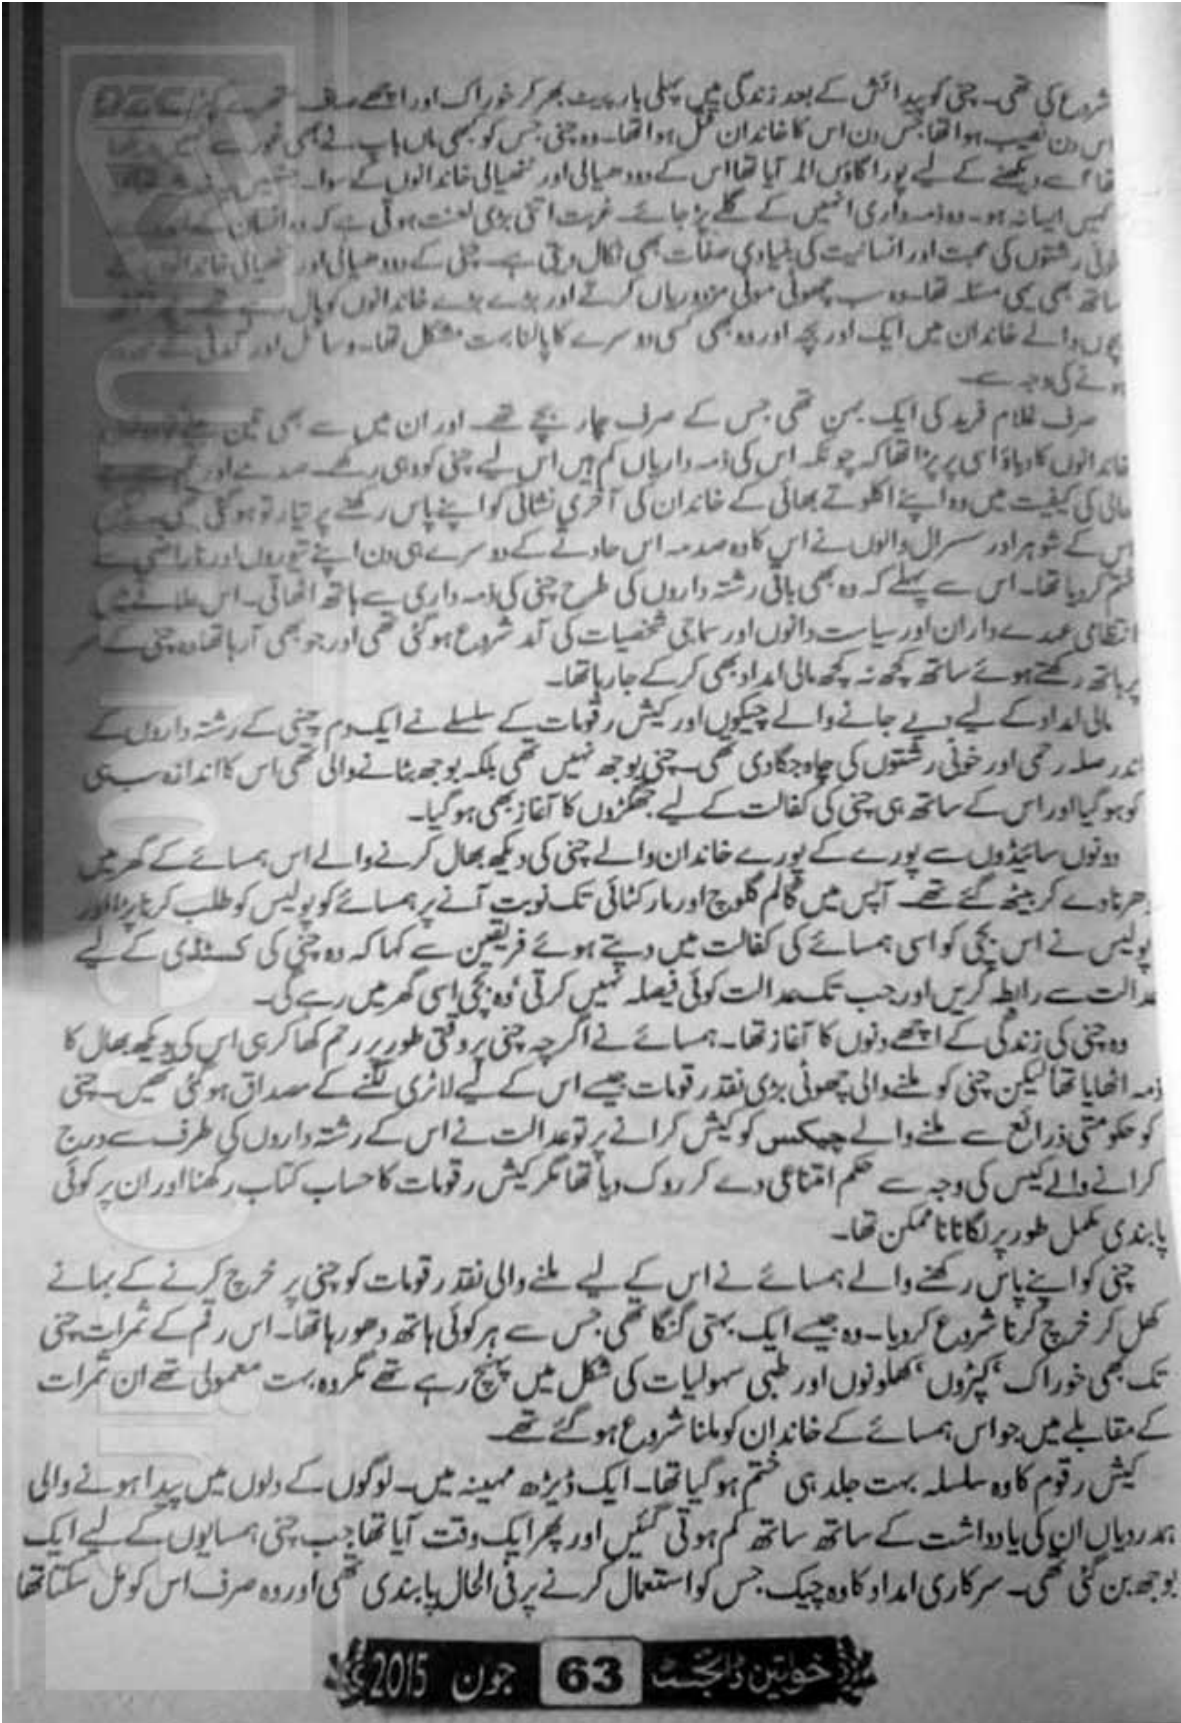 شروع کی تھی۔ چنی کو پیدائش کے بعد زندگی میں پہلی بار پیٹ بھر کر خوراک اور اچھے صاف ستھرے کپڑے
اس دن نصیب ہوا تھا جس دن اس کا خاندان قتل ہوا تھا۔ وہ چنی جس کو کبھی ماں باپ نے بھی غور سے نہیں دیکھا
تھا اسے دیکھنے کے لیے پورا گاؤں امڈ آیا تھا اس کے ددھیالی اور ننھیالی خاندانوں کے سوا۔
کہیں ایسا نہ ہو۔ وہ ذمہ داری انہیں کے گلے پڑ جائے۔ غربت اتنی بڑی لعنت ہوتی ہے کہ وہ انسان کے اندر سے
خونی رشتوں کی محبت اور انسانیت کی بنیادی صفات بھی نکال دیتی ہے۔ چنی کے ددھیالی اور ننھیالی خاندانوں کے
ساتھ بھی یہی مسئلہ تھا۔ وہ سب چھوٹی موٹی مزدوریاں کرتے اور بڑے بڑے خاندانوں کو پال رہے تھے۔
بچوں والے خاندان میں ایک اور بچہ اور وہ بھی کسی دوسرے کا پالنا بہت مشکل تھا۔ وسائل اور آمدنی کے محدود
ہونے کی وجہ سے۔
صرف غلام فرید کی ایک بہن تھی جس کے صرف چار بچے تھے۔ اور ان میں سے بھی تین بیٹے
خاندانوں کا دباؤ اسی پر پڑا تھا کہ چونکہ اس کی ذمہ داریاں کم ہیں اس لیے چنی کو وہی رکھے۔ صدمے اور
حالی کی کیفیت میں وہ اپنے اکلوتے بھائی کے خاندان کی آخری نشانی کو اپنے پاس رکھنے پر تیار تو ہو گئی تھی
اس کے شوہر اور سسرال والوں نے اس کا وہ صدمہ اس حادثے کے دوسرے ہی دن اپنے تیوروں اور ناراضی سے
ختم کر دیا تھا۔ اس سے پہلے کہ وہ بھی باقی رشتہ داروں کی طرح چنی کی ذمہ داری سے ہاتھ اٹھاتی۔ اس علاقے میں
انتظامی عہدے داران اور سیاست دانوں اور سماجی شخصیات کی آمد شروع ہو گئی تھی اور جو بھی آ رہا تھا وہ چنی کے سر
پر ہاتھ رکھتے ہوئے ساتھ کچھ نہ کچھ مالی امداد بھی کر کے جا رہا تھا۔
مالی امداد کے لیے دیے جانے والے چیکوں اور کیش رقومات کے سلسلے نے ایک دم چنی کے رشتہ داروں کے
اندر صلہ رحمی اور خونی رشتوں کی چاہ جگا دی تھی۔ چنی بوجھ نہیں تھی بلکہ بوجھ بٹانے والی تھی اس کا اندازہ سب ہی
کو ہو گیا اور اس کے ساتھ ہی چنی کی کفالت کے لیے جھگڑوں کا آغاز بھی ہو گیا۔
دونوں سائیڈوں سے پورے کے پورے خاندان والے چنی کی دیکھ بھال کرنے والے اس ہمسائے کے گھر میں
دھرنا دے کر بیٹھ گئے تھے۔ آپس میں گالم گلوچ اور مار کٹائی تک نوبت آنے پر ہمسائے کو پولیس کو طلب کرنا پڑا اور
پولیس نے اس بچی کو اسی ہمسائے کی کفالت میں دیتے ہوئے فریقین سے کہا کہ وہ چنی کی کسٹڈی کے لیے
عدالت سے رابطہ کریں اور جب تک عدالت کوئی فیصلہ نہیں کرتی، وہ بچی اسی گھر میں رہے گی۔
وہ چنی کی زندگی کے اچھے دنوں کا آغاز تھا۔ ہمسائے نے اگرچہ چنی پر وقتی طور پر رحم کھا کر ہی اس کی دیکھ بھال کا
ذمہ اٹھایا تھا لیکن چنی کو ملنے والی چھوٹی بڑی نقد رقومات جیسے اس کے لیے لاٹری لگنے کے مصداق ہو گئی تھیں۔ چنی
کو حکومتی ذرائع سے ملنے والے چیکس کو کیش کرانے پر تو عدالت نے اس کے رشتہ داروں کی طرف سے درج
کرانے والے کیس کی وجہ سے حکم امتناعی دے کر روک دیا تھا مگر کیش رقومات کا حساب کتاب رکھنا اور ان پر کوئی
پابندی مکمل طور پر لگانا ناممکن تھا۔
چنی کو اپنے پاس رکھنے والے ہمسائے نے اس کے لیے ملنے والی نقد رقومات کو چنی پر خرچ کرنے کے بہانے
کھل کر خرچ کرنا شروع کر دیا۔ وہ جیسے ایک بہتی گنگا تھی جس سے ہر کوئی ہاتھ دھو رہا تھا۔ اس رقم کے ثمرات چنی
تک بھی خوراک، کپڑوں، کھلونوں اور طبی سہولیات کی شکل میں پہنچ رہے تھے مگر وہ بہت معمولی تھے ان ثمرات
کے مقابلے میں جو اس ہمسائے کے خاندان کو ملنا شروع ہو گئے تھے۔
کیش رقوم کا وہ سلسلہ بہت جلد ہی ختم ہو گیا تھا۔ ایک ڈیڑھ مہینہ میں۔ لوگوں کے دلوں میں پیدا ہونے والی
ہمدردیاں ان کی یادداشت کے ساتھ ساتھ کم ہوتی گئیں اور پھر ایک وقت آیا تھا جب چنی ہمسایوں کے لیے ایک
بوجھ بن گئی تھی۔ سرکاری امداد کا وہ چیک جس کو استعمال کرنے پر فی الحال پابندی تھی اور وہ صرف اس کو مل سکتا تھا
خواتین ڈائجسٹ 63 جون 2015